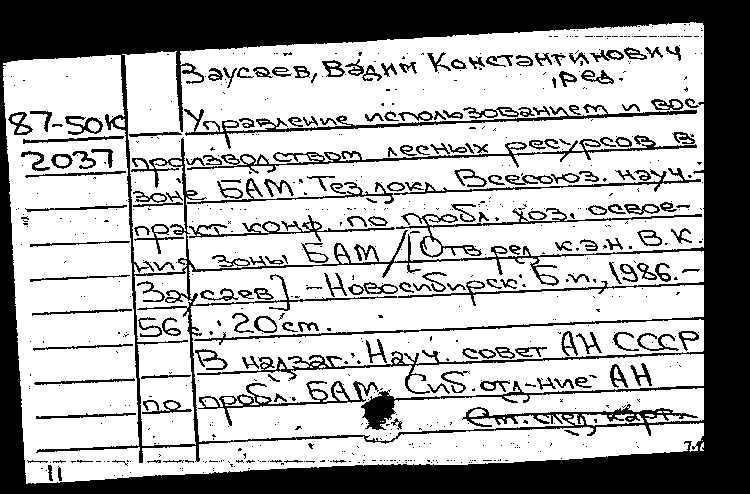 Заусаев, Вадим Константинович
, ред.
87-50К
Управление использованием и вос-
2037
производством лесных ресурсов в
зоне БАМ: Тез. докл. Всесоюз. науч.-
практ конф. по пробл. хоз. освое-
ния зоны БАМ / [Отв. ред. к.э.н. В.К.
Заусаев]. - Новосибирск: Б.и., 1986. -
56 с.; 20 ст.
В надзаг.: Науч. совет АН СССР
по пробл. БАМ. Сиб. отд-ние АН
См. след. карт.
11